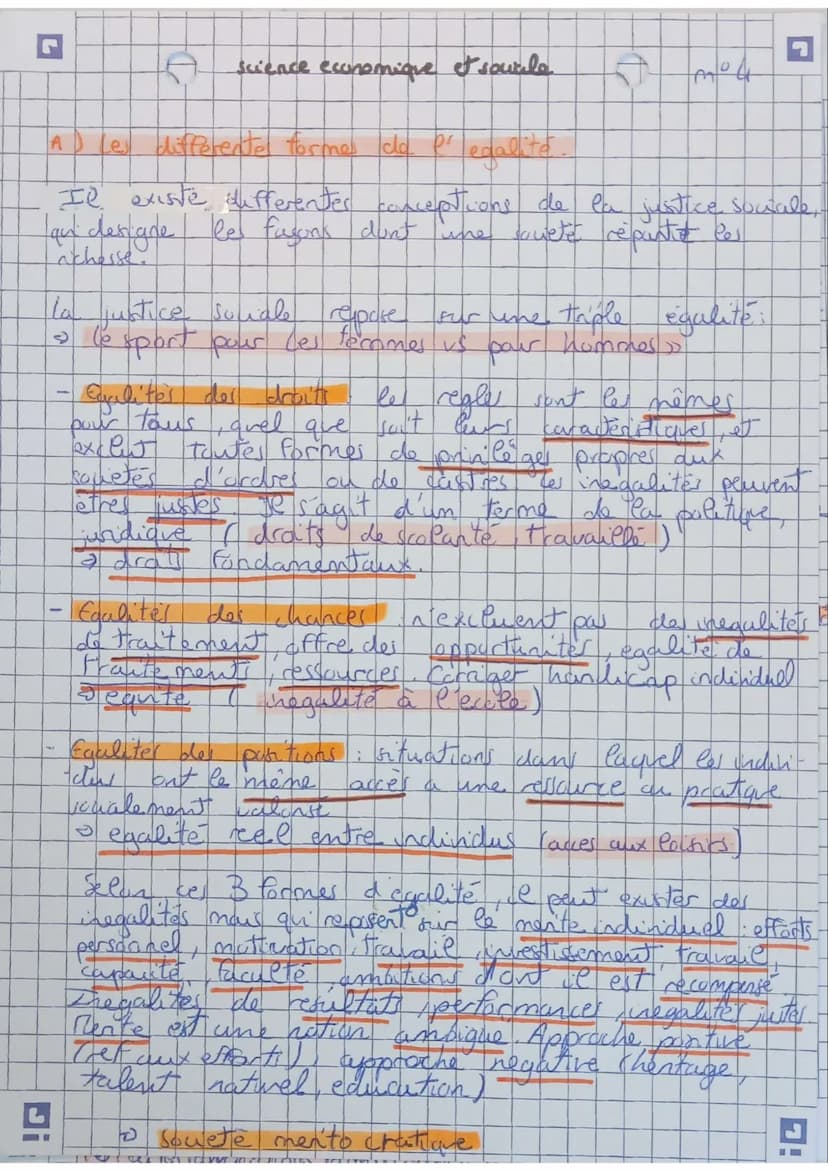 science economique et sociale n°4
A) Les différentes formes de l'égalité.
Il existe differentes conceptions de la justice sociale,
qui designe les façons dont une societé répartit les
richesse.
La justice sociale repose sur une triple égalité :
→ le sport pour les femmes vs pour hommes »
- Egalités des droits les regles sont les mêmes
pour tous, quel que soit leurs caractéristiques, et
exclut toutes formes de privilèges propres aux
sociétés d'ordres ou de castres les inégalités peuvent
êtres justes. Il s'agit d'un terme de la politique,
juridique ( droits de scolarité, travaillé )
→ droits fondamentaux.
- Egalités des chances n'excluent pas des inegalités
de traitement, offre des opportunités, egalité de
traitements, ressources. Corriger handicap individuel
→ equité ( inégalité à l'ecole)
- Egalites des positions : situations dans laquel les indivi-
dus ont le même accès a une ressource ou pratique
socialement valorisé
→ egalité reel entre individus (acces aux loisirs)
Selon ces 3 formes d'égalité, il peut exister des
inegalités mais qui reposent sur le merite individuel : efforts
personnel, motivation, travail, investissement, travail,
capacité, faculté, ambitions dont il est récompensé
Inegalités de résultats, performances, inegalités justes
Merite est une notion ambigue. Approche positive
(ref aux efforts), approche negative (héritage,
talent naturel, education)
→ societé merito cratique